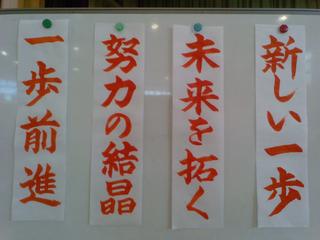 新しい一歩
未来を拓く
努力の結晶
一歩前進